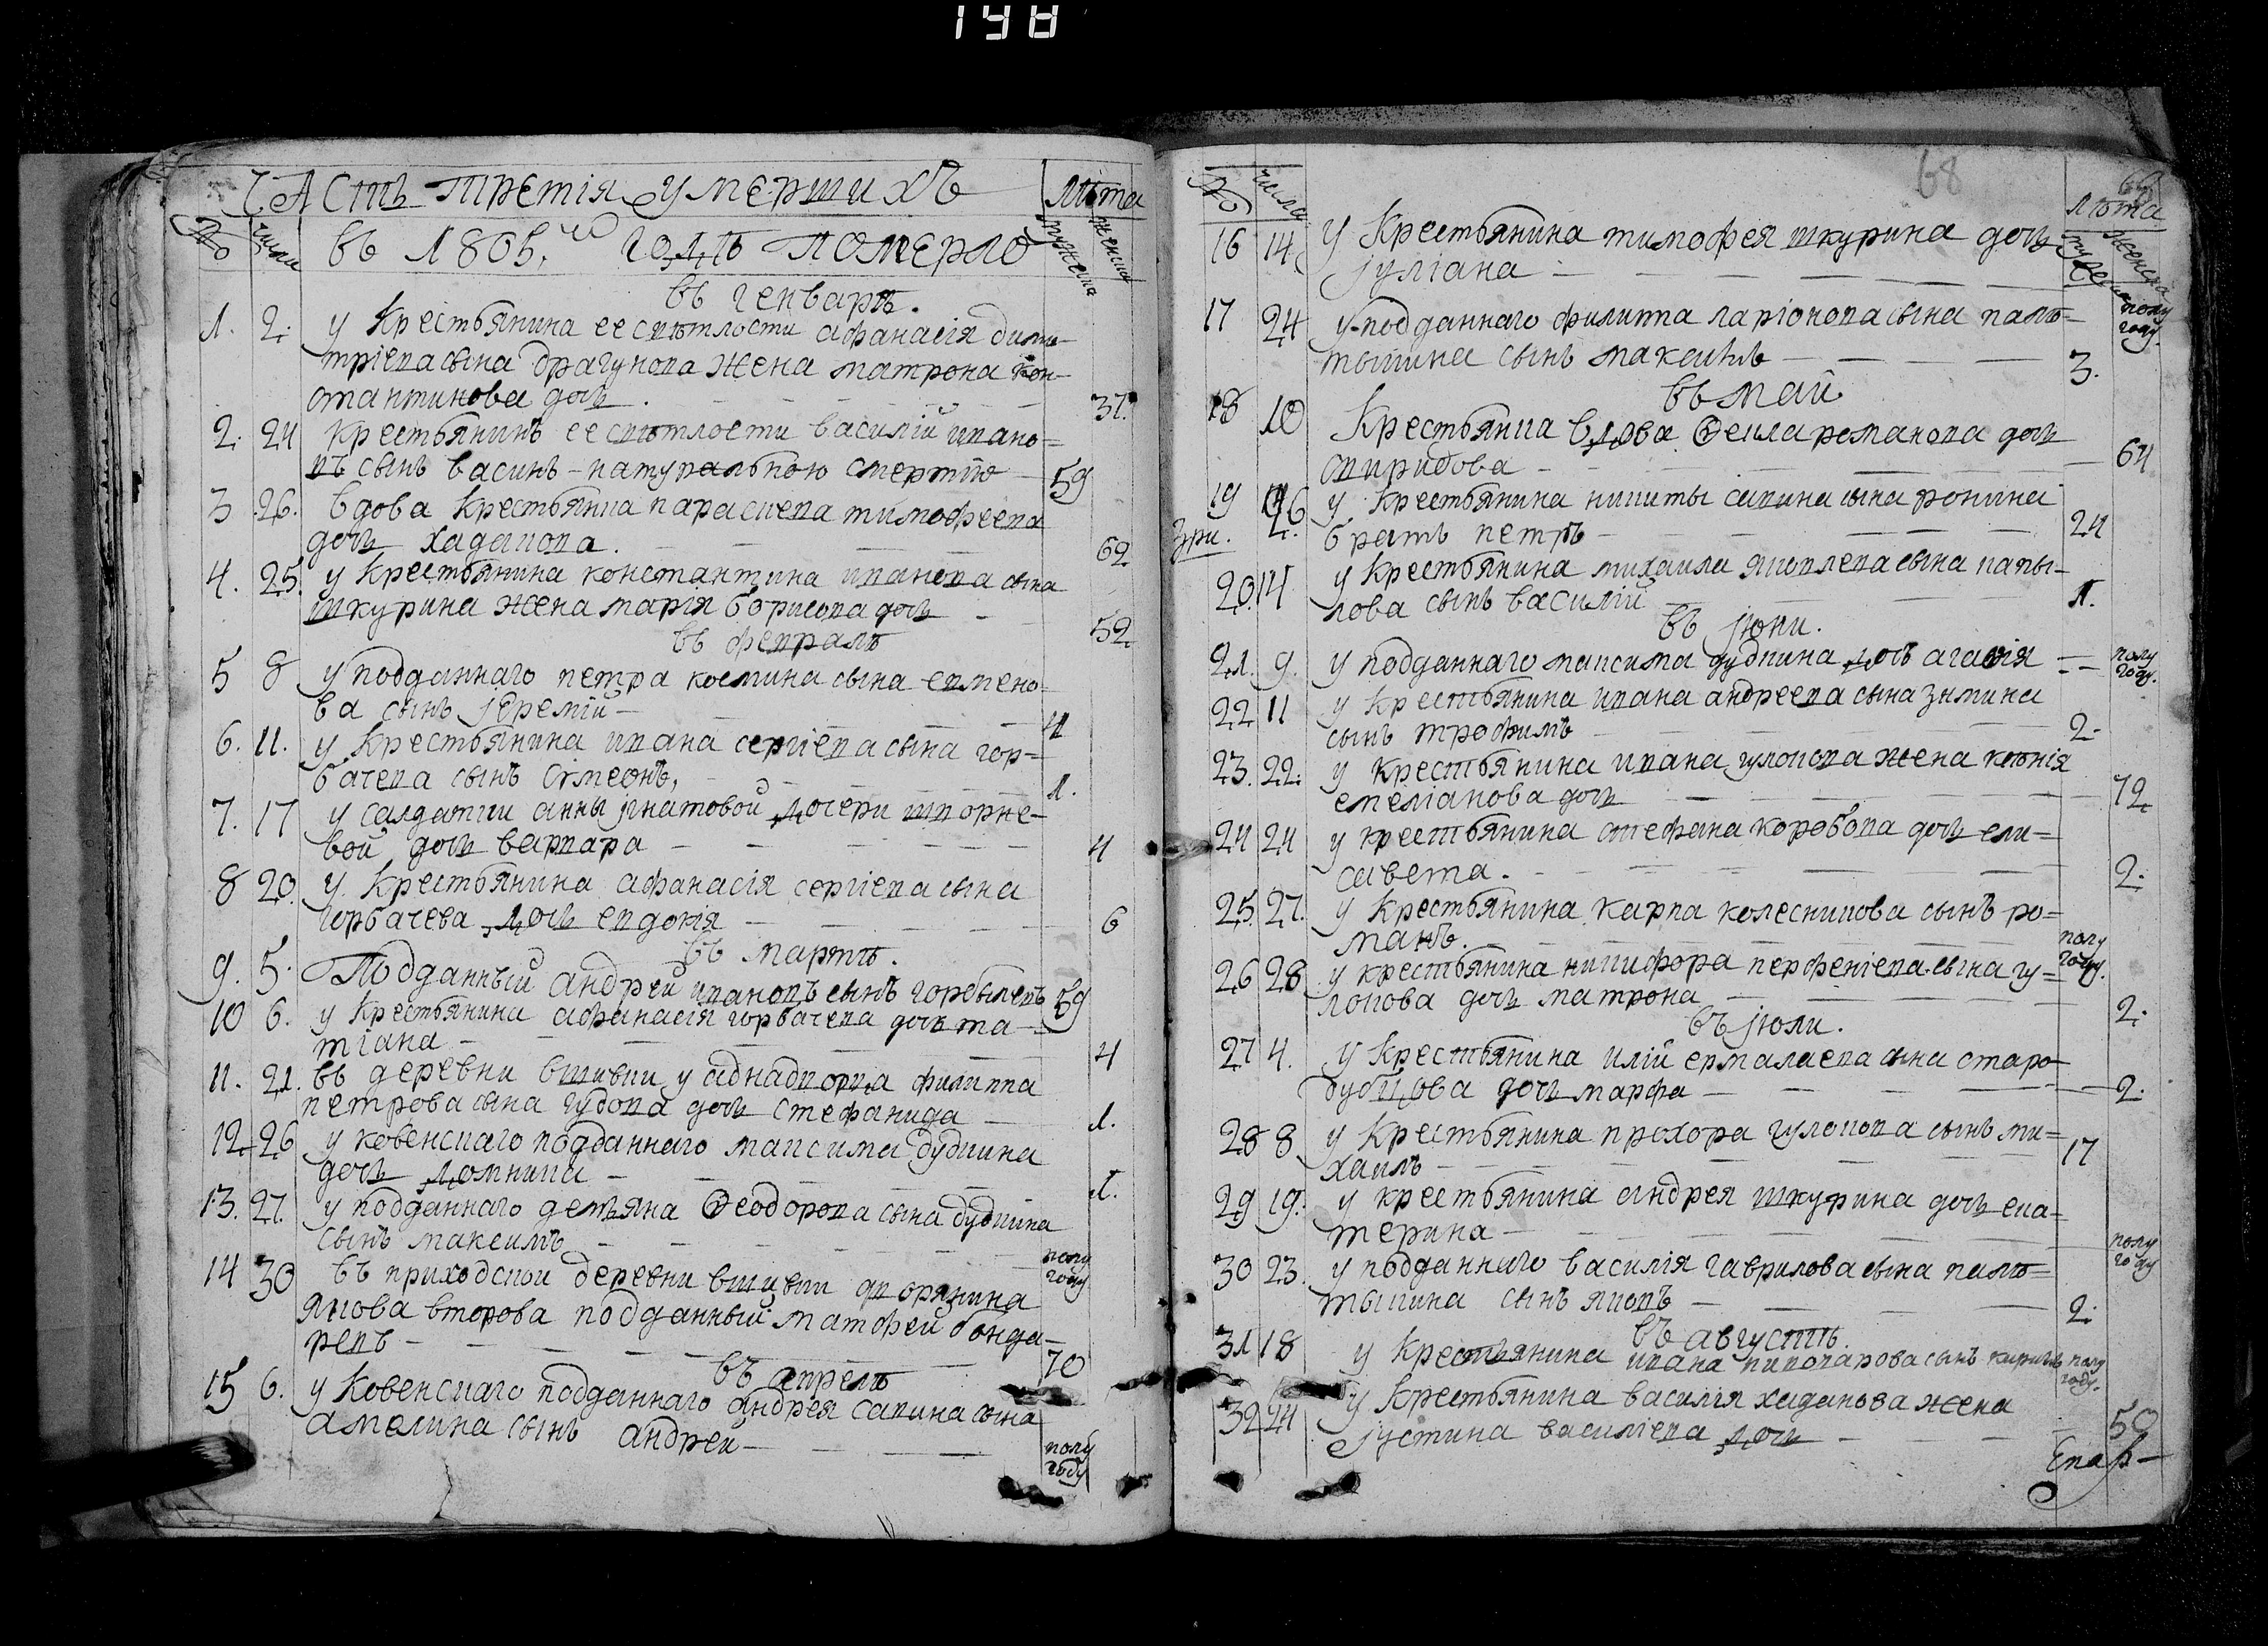 198
ЧАСть третія умершихъ
лѣта
№
числа
въ 1805.го годѣ померло
мужеска
женска
въ генварѣ.
1. 2. у крестьянина ее свѣтлости афанасія дими-
тріева сына драгунова жена матрона кон-
стантинова дочь. 37.
2. 24 крестьянинъ ее свѣтлости василій ивано=
въ сынъ васинъ - натуральною смертію 59
3 26. вдова крестьянка параскева тимофеева
дочь хаданова. 62
4. 25. у крестьянина константина иванова сына
шкурина жена марія борисова дочь - 52
въ февралѣ
5 8 у подданнаго петра космина сына евмено-
ва сынъ іеремій - 4
6. 11. у крестьянина ивана сергіева сына гор=
бачева сынъ симеонъ, 1.
7. 17 у салдатки анны игнатовой дочери
вой дочь варвара - 4
8 20. у крестьянина афанасія сергіева сына
горбачева дочь евдокія - 6
въ мартѣ.
9. 5. Подданный андрей ивановъ сынъ горбылевъ 59
10 6. у крестьянина афанасія горбачева дочь та-
тіана - 4
11. 21. въ деревни вшивки у аднадворца филиппа
петрова сына губова дочь стефанида - 1.
12. 26 у ковенскаго подданнаго максима дудкина
дочь домника - 1.
13. 27. у подданнаго демьяна Ѳеодорова сына дудкина
сынъ максимъ - полу году
14 30 въ приходской деревни вшивки дворянина
якова второва подданный матфей бонда-
ревъ - 70
въ апрелѣ
15 6. у ковенскаго подданнаго андрея савина сына
амелина сынъ андрей - полу году
68
№
числа
лѣта
мужеска
женска
16 14. у крестьянина тимофея шкурина дочь
іуліана - полу году.
17 24 у подданнаго филиппа ларіонова сына палю-
тышина сынъ максимъ - 3.
въ май
18 10 крестьянка вдова Ѳекла романова дочь
спиридова - 64
19 26 у крестьянина никиты савина сына ронина
зри. 2. братъ петръ - 24
20. 14 у крестьянина михаила яковлева сына
лова сынъ василій - 1.
въ іюни.
21. 9. у подданнаго максима дудкина дочь агафія - полу году.
22 11 у крестьянина ивана андреева сына зимина
сынъ трофимъ - 2.
23. 22. у крестьянина ивана гулокова жена ксѣнія
емеліанова дочь - 72
24 24 у крестьянина стефана коробова дочь ели=
савета. - 2.
25. 27. у крестьянина карпа колесникова сынъ ро=
манъ. - полу году.
26 28 у крестьянина никифора перфеніева сына гу=
локова дочь матрона - 2.
въ іюли.
27 4. у крестьянина илій ермалаева сына старо-
дубцова дочь марфа - 2.
28 8 у крестьянина прохора гулокова сынъ ми=
хаилъ - 17
29 19. у крестьянина андрея шкурина дочь ека=
терина - полу году
30 23. у подданнаго василія гаврилова сына палю=
тышина сынъ яковъ - 2.
въ августѣ.
31 18 у крестьянина ивана пивоварова сынъ кирилъ полу году.
32 24 у крестьянина василія хаданова жена
іустина василіева дочь - 50